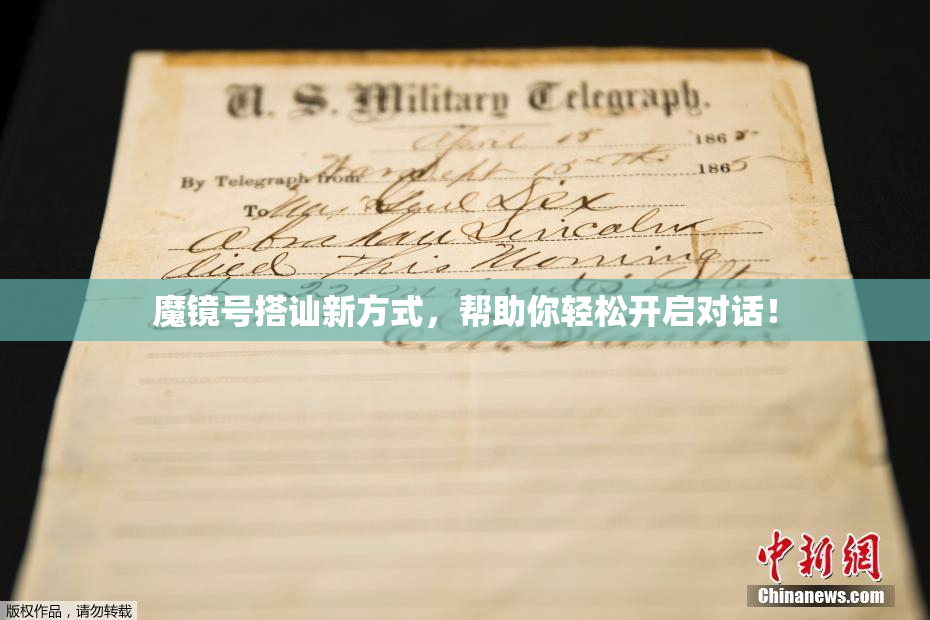 U. S. Military Telegraph.
April 15 1865
By Telegraph from War Dept 15th 1865
To Maj Genl Dix
Abraham Lincoln
died This Morning
at 22 minutes after
魔镜号搭讪新方式，帮助你轻松开启对话！
E. M. Stanton
中新网
Chinanews.com
版权作品，请勿转载